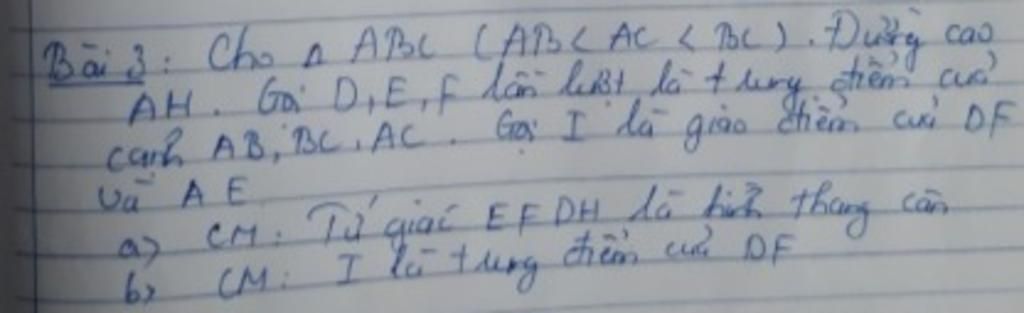 Bài 3: Cho Δ ABC (AB < AC < BC). Đường cao
AH. Gọi D, E, F lần lượt là trung điểm của
cạnh AB, BC, AC. Gọi I là giao điểm của DF
và AE
a) CM: Tứ giác EFDH là hình thang cân
b) CM: I là trung điểm của DF